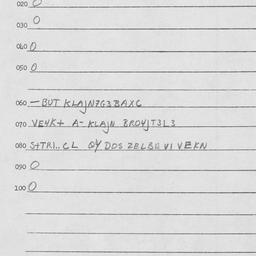 020 0
030 0
060 0
050 0
060 — BUT KLAJN7G3BAXC
070 VE4K+ A- KLAJN 8RO4JT3L3
080 S+TRI.. CL QY DOS ZELBR VI VEKN
090 0
100 0